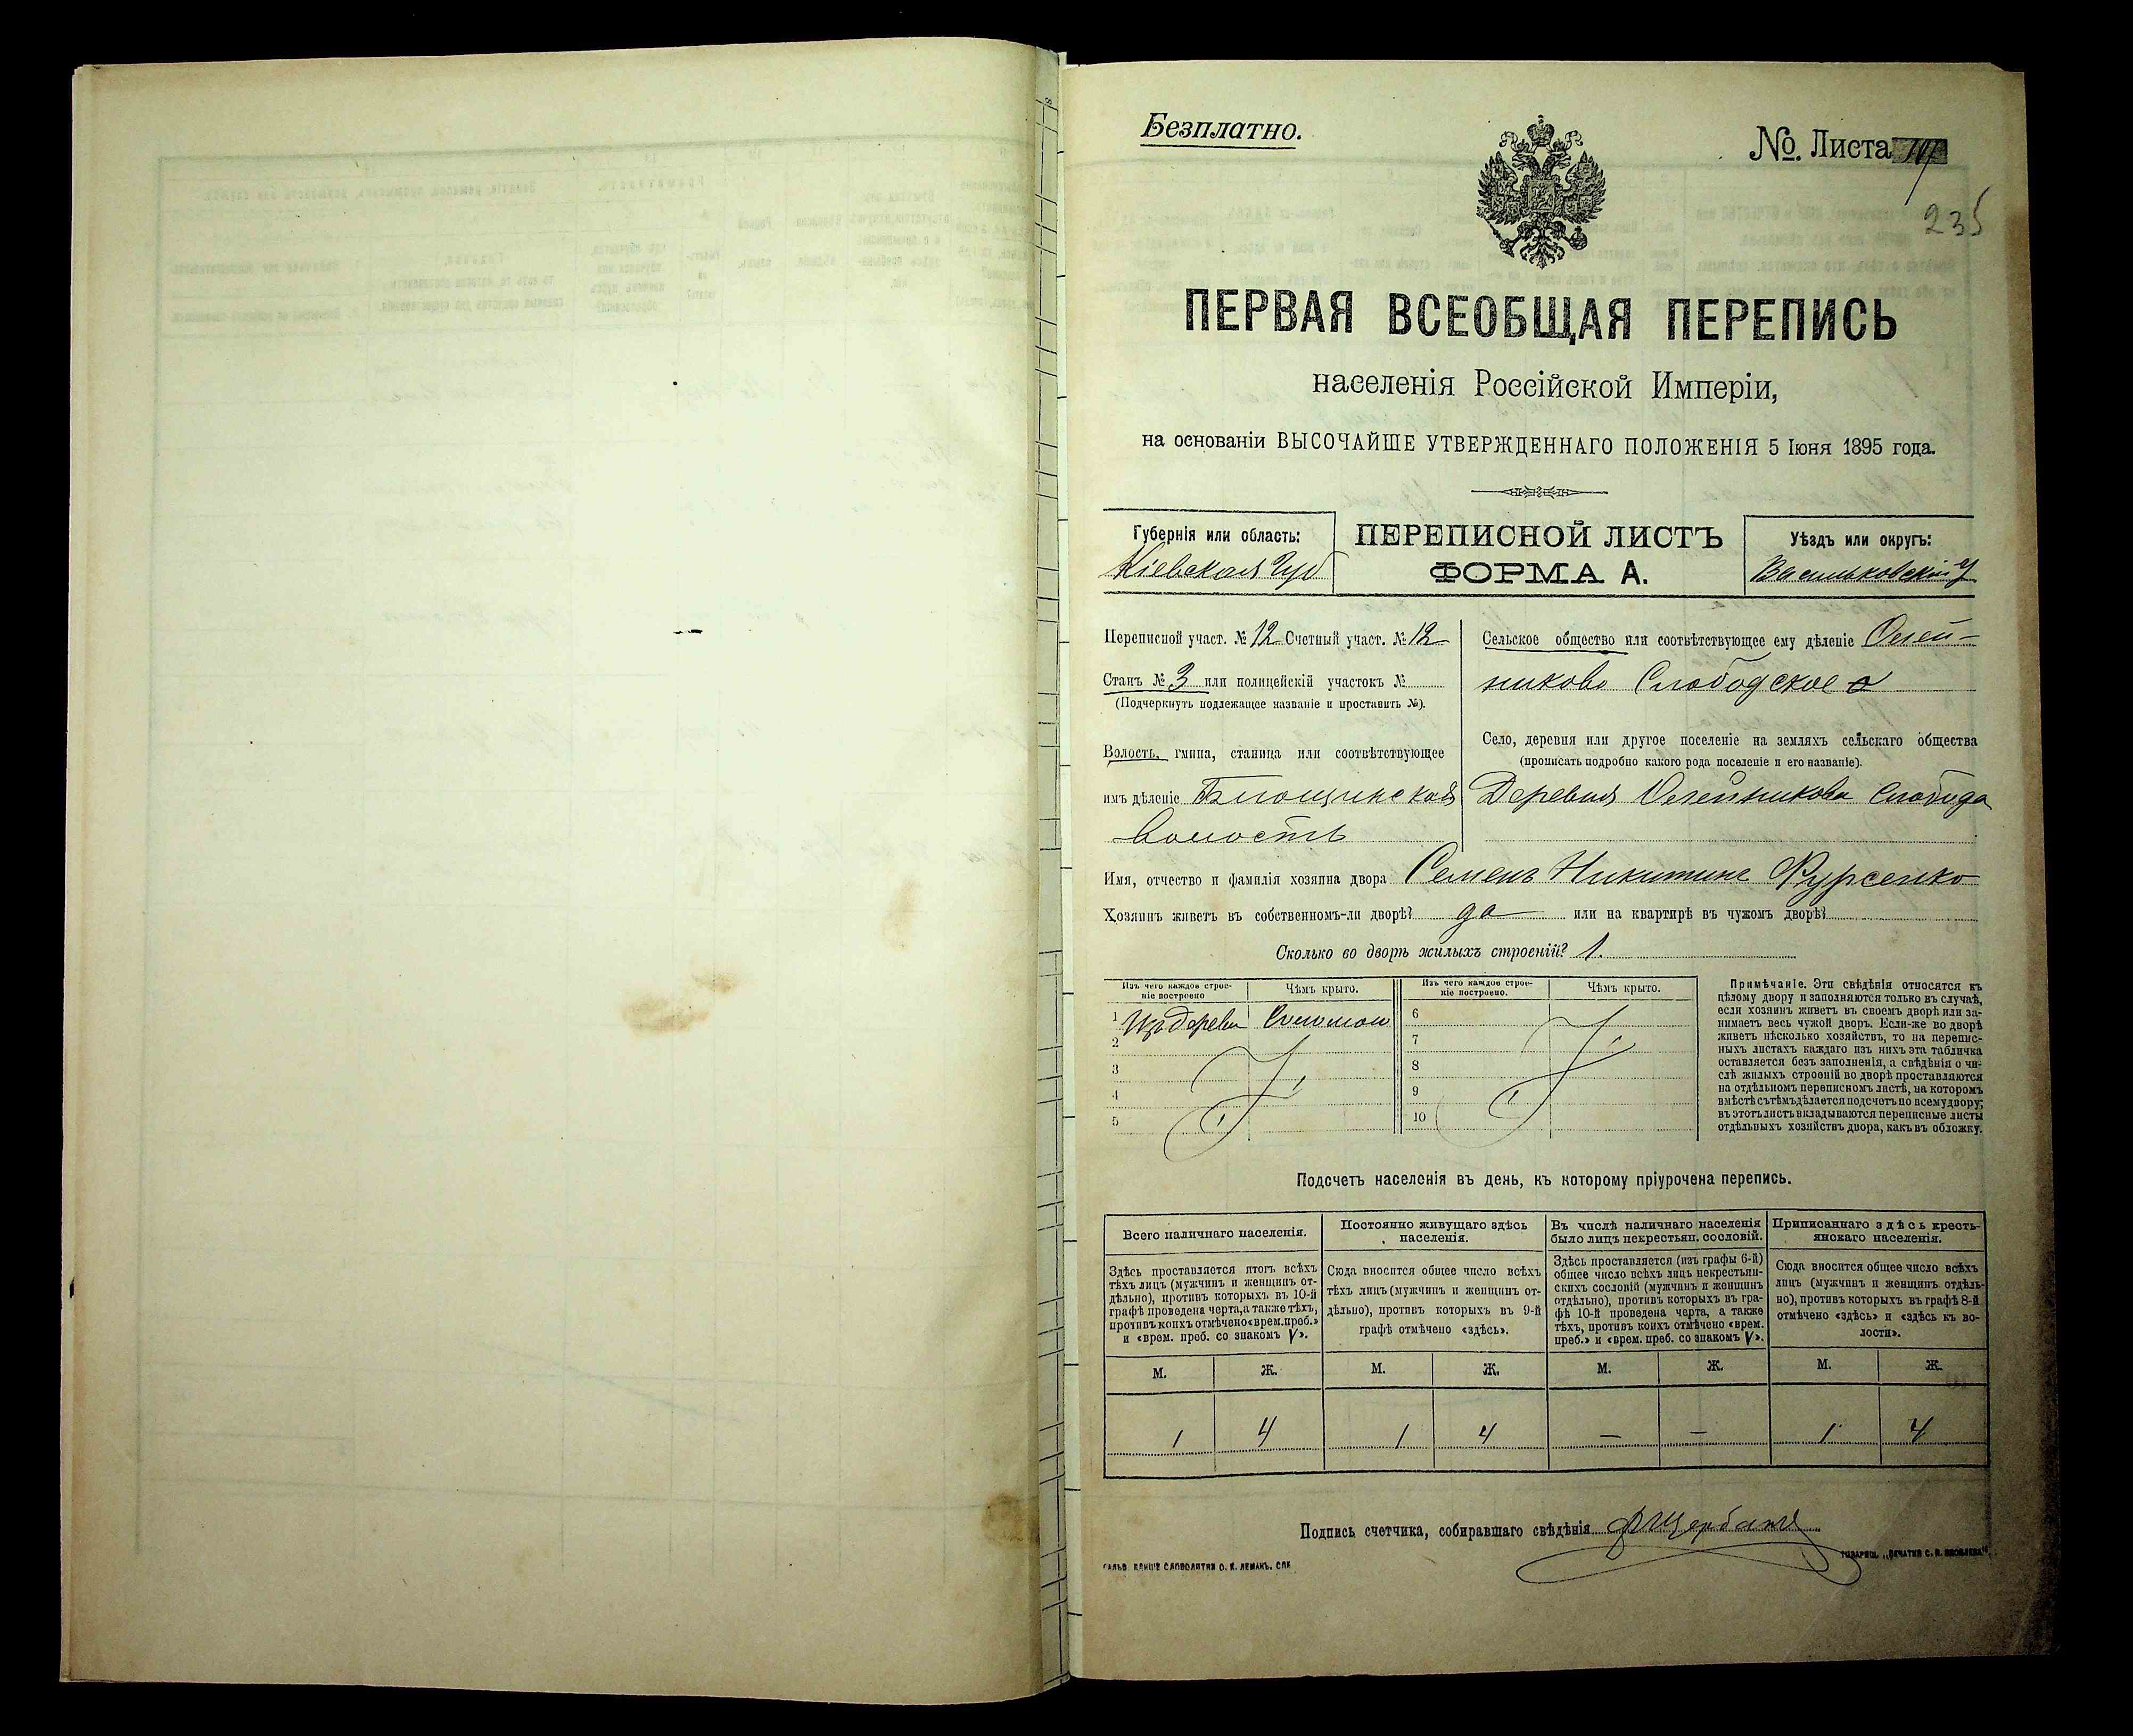 Безплатно.
№. Листа
235
ПЕРВАЯ ВСЕОБЩАЯ ПЕРЕПИСЬ
населенія Россійской Имперіи,
на основаніи ВЫСОЧАЙШЕ УТВЕРЖДЕННАГО ПОЛОЖЕНІЯ 5 Іюня 1895 года.
Губернія или область:
Кіевская губ
ПЕРЕПИСНОЙ ЛИСТЪ
ФОРМА А.
Уѣздъ или округъ:
Васильковскій у
Переписной участ. № 12 Счетный участ. № 12
Станъ № 3 или полицейскій участокъ №
(Подчеркнуть подлежащее названіе и проставить №).
Волость, гмина, станица или соотвѣтствующее
имъ дѣленіе Блощинская
Волость
Сельское общество или соотвѣтствующее ему дѣленіе Олей-
никово Слободское
Село, деревня или другое поселеніе на земляхъ сельскаго общества
(прописать подробно какого рода поселеніе и его названіе).
Деревня Олейникова Слобода
Имя, отчество и фамилія хозяина двора Семенъ Никитинъ Фурсенко
Хозяинъ живетъ въ собственномъ-ли дворѣ? да или на квартирѣ въ чужомъ дворѣ?
Сколько во дворѣ жилыхъ строеній? 1.
Изъ чего каждое строе-
ніе построено
Чѣмъ крыто.
Изъ чего каждое строе-
ніе построено.
Чѣмъ крыто.
1 Изъ дерева Соломою
2
3
4
5
6
7
8
9
10
Примѣчаніе. Эти свѣдѣнія относятся къ
цѣлому двору и заполняются только въ случаѣ,
если хозяинъ живетъ въ своемъ дворѣ или за-
нимаетъ весь чужой дворъ. Если-же во дворѣ
живетъ нѣсколько хозяйствъ, то на перепис-
ныхъ листахъ каждаго изъ нихъ эта табличка
оставляется безъ заполненія, а свѣдѣнія о чи-
слѣ жилыхъ строеній во дворѣ проставляются
на отдѣльномъ переписномъ листѣ, на которомъ
вмѣстѣ съ тѣмъ дѣлается подсчетъ по всему двору;
въ этотъ листъ вкладываются переписные листы
отдѣльныхъ хозяйствъ двора, какъ въ обложку.
Подсчетъ населенія въ день, къ которому пріурочена перепись.
Всего наличнаго населенія.
Здѣсь проставляется итогъ всѣхъ
тѣхъ лицъ (мужчинъ и женщинъ от-
дѣльно), противъ которыхъ въ 10-й
графѣ проведена черта, а также тѣхъ,
противъ коихъ отмѣчено «врем. преб.»
и «врем. преб. со знакомъ V».
Постоянно живущаго здѣсь
населенія.
Сюда вносится общее число всѣхъ
тѣхъ лицъ (мужчинъ и женщинъ от-
дѣльно), противъ которыхъ въ 9-й
графѣ отмѣчено «здѣсь».
Въ числѣ наличнаго населенія
было лицъ некрестьян. сословій.
Здѣсь проставляется (изъ графы 6-й)
общее число всѣхъ лицъ некрестьян-
скихъ сословій (мужчинъ и женщинъ
отдѣльно), противъ которыхъ въ гра-
фѣ 10-й проведена черта, а также
тѣхъ, противъ коихъ отмѣчено «врем.
преб.» и «врем. преб. со знакомъ V».
Приписаннаго здѣсь кресть-
янскаго населенія.
Сюда вносится общее число всѣхъ
лицъ (мужчинъ и женщинъ отдѣль-
но), противъ которыхъ въ графѣ 8-й
отмѣчено «здѣсь» и «здѣсь къ во-
лости».
М. Ж. М. Ж. М. Ж. М. Ж.
1 4 1 4 — — 1 4
Подпись счетчика, собиравшаго свѣдѣнія
ГАЛЬВ. КЛИШЕ СЛОВОЛИТНИ О. И. ЛЕМАНЪ. СПБ
ТОВАРИЩ. „ПЕЧАТНЯ С. П. ЯКОВЛЕВА".